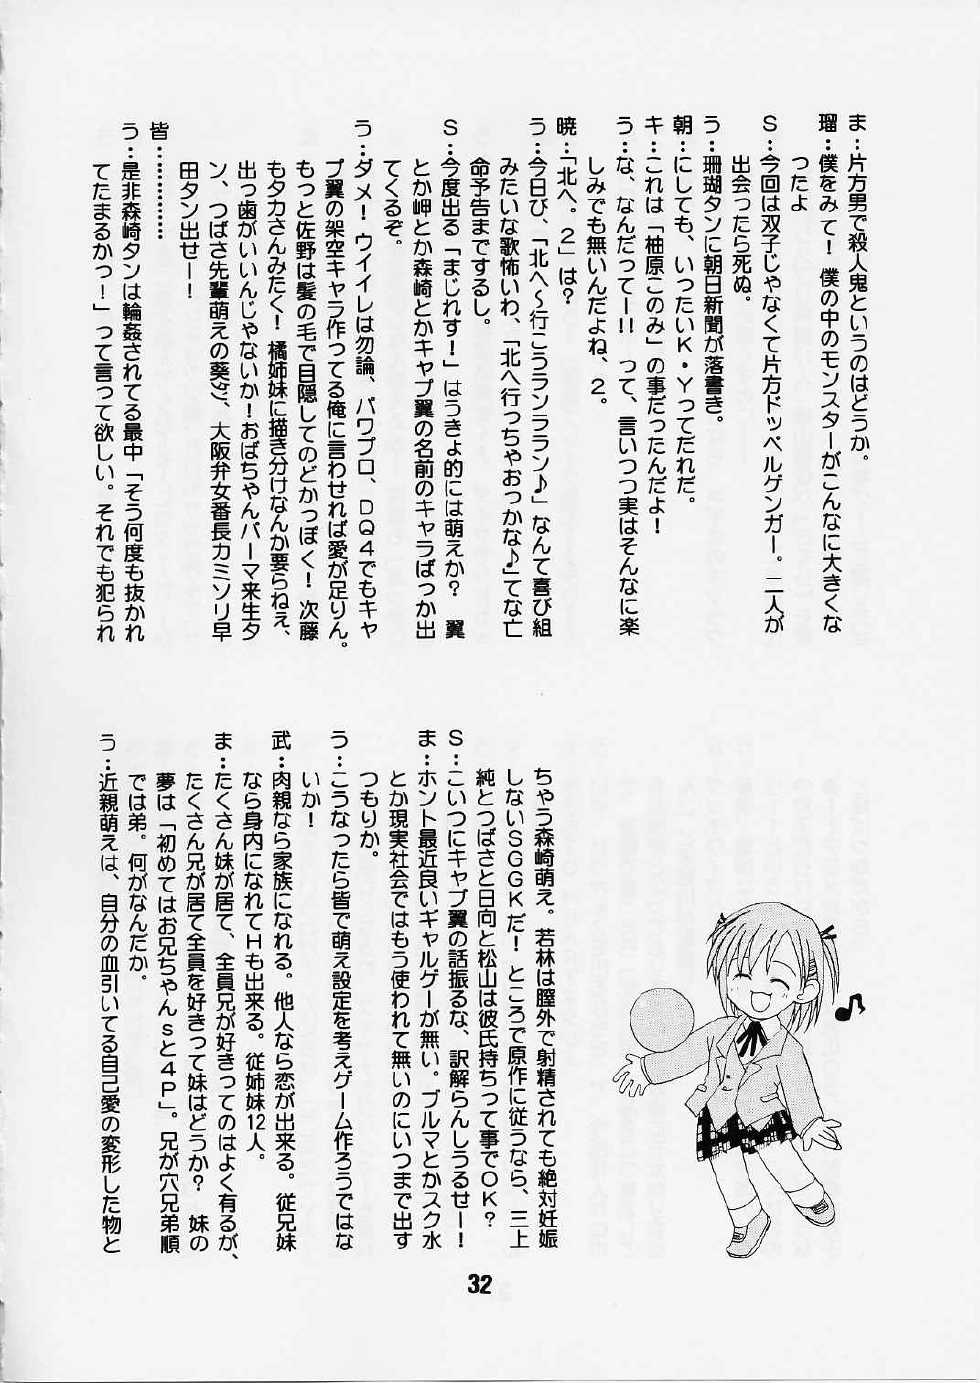 ま：片方男で殺人鬼というのはどうか。
瑠：僕をみて！　僕の中のモンスターがこんなに大きくな
ったよ
Ｓ：今回は双子じゃなくて片方ドッペルゲンガー。二人が
出会ったら死ぬ。
う：珊瑚タンに朝日新聞が落書き。
朝：にしても、いったいＫ・Ｙってだれだ。
キ：これは「柚原このみ」の事だったんだよ！
う：な、なんだってー!!　って、言いつつ実はそんなに楽
しみでも無いんだよね、２。
暁：「北へ。２」は？
う：今日び、「北へ～行こうランララン♪」なんて喜び組
みたいな歌怖いわ、「北へ行っちゃおっかな♪」てな亡
命予告までするし。
Ｓ：今度出る「まじれす！」はうきょ的には萌えか？　翼
とか岬とか森崎とかキャプ翼の名前のキャラばっか出
てくるぞ。
う：ダメ！ウイイレは勿論、パワプロ、ＤＱ４でもキャ
プ翼の架空キャラ作ってる俺に言わせれば愛が足りん。
もっと佐野は髪の毛で目隠してのどかっぽく！次藤
もタカさんみたく！橘姉妹に描き分けなんか要らねえ、
出っ歯がいいんじゃないか！おばちゃんパーマ来生タ
ン、つばさ先輩萌えの葵タン、大阪弁女番長カミソリ早
田タン出せー！
皆：…………
う：是非森崎タンは輪姦されてる最中「そう何度も抜かれ
てたまるかっ！」って言って欲しい。それでも犯られ
ちゃう森崎萌え。若林は膣外で射精されても絶対妊娠
しないＳＧＧＫだ！　ところで原作に従うなら、三上
純とつばさと日向と松山は彼氏持ちって事でＯＫ？
Ｓ：こいつにキャプ翼の話振るな、訳解らんしうるせー！
ま：ホント最近良いギャルゲーが無い。ブルマとかスク水
とか現実社会ではもう使われて無いのにいつまで出す
つもりか。
う：こうなったら皆で萌え設定を考えゲーム作ろうではな
いか！
武：肉親なら家族になれる。他人なら恋が出来る。従兄妹
なら身内になれてＨも出来る。従姉妹12人。
ま：たくさん妹が居て、全員兄が好きってのはよく有るが、
たくさん兄が居て全員を好きって妹はどうか？　妹の
夢は「初めてはお兄ちゃんｓと４Ｐ」。兄が穴兄弟順
では弟。何がなんだか。
う：近親萌えは、自分の血引いてる自己愛の変形した物と
32